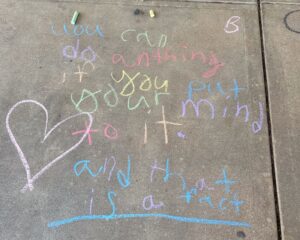 you can B
do anthing
if you put
your mind
to it.
and that
is a fact